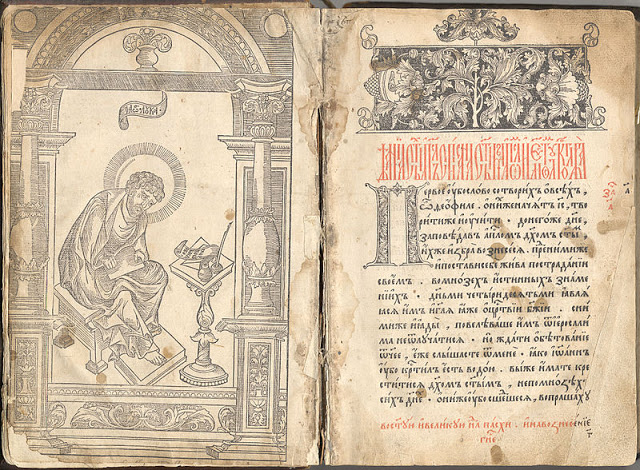 Первое ꙋбо слово сотворихъ о всѣхъ,
ѽ ѳеофиле. ѡ нихже начатъ і҃с, тво
рити же и ꙋчити. до негоже дн҃е,
заповѣдавъ ап҃лом дх҃ом ст҃ым,
ихже избра вознесесѧ. пред ними же
и постави себе жива по страданїи
своемъ. во мнозѣхъ истинныхъ знаме
нїихъ. дньми четыридесѧтьми ꙗвлѧ
ѧсѧ имъ. и гл҃ѧ ꙗже ѡ црс҃твїи бж҃їи. с ни
ми же и ꙗды. повелѣваше имъ ѿ иерсали
ма не ѿлꙋчатисѧ. но ждати обѣтованїе
ѿчее, еже слышасте ѿ мене. ꙗко їѡаннъ
ꙋбо крт҃илъ есть водою. вы же имате кре
ститисѧ дх҃омъ ст҃ымъ, не по мнозѣхъ
сихъ дн҃ехъ. ѡни же ꙋбо сшедшесѧ, вопрашахꙋ
во ст҃ꙋю и великꙋю нл҃ю пасхи. и на вознесение
гн҃е